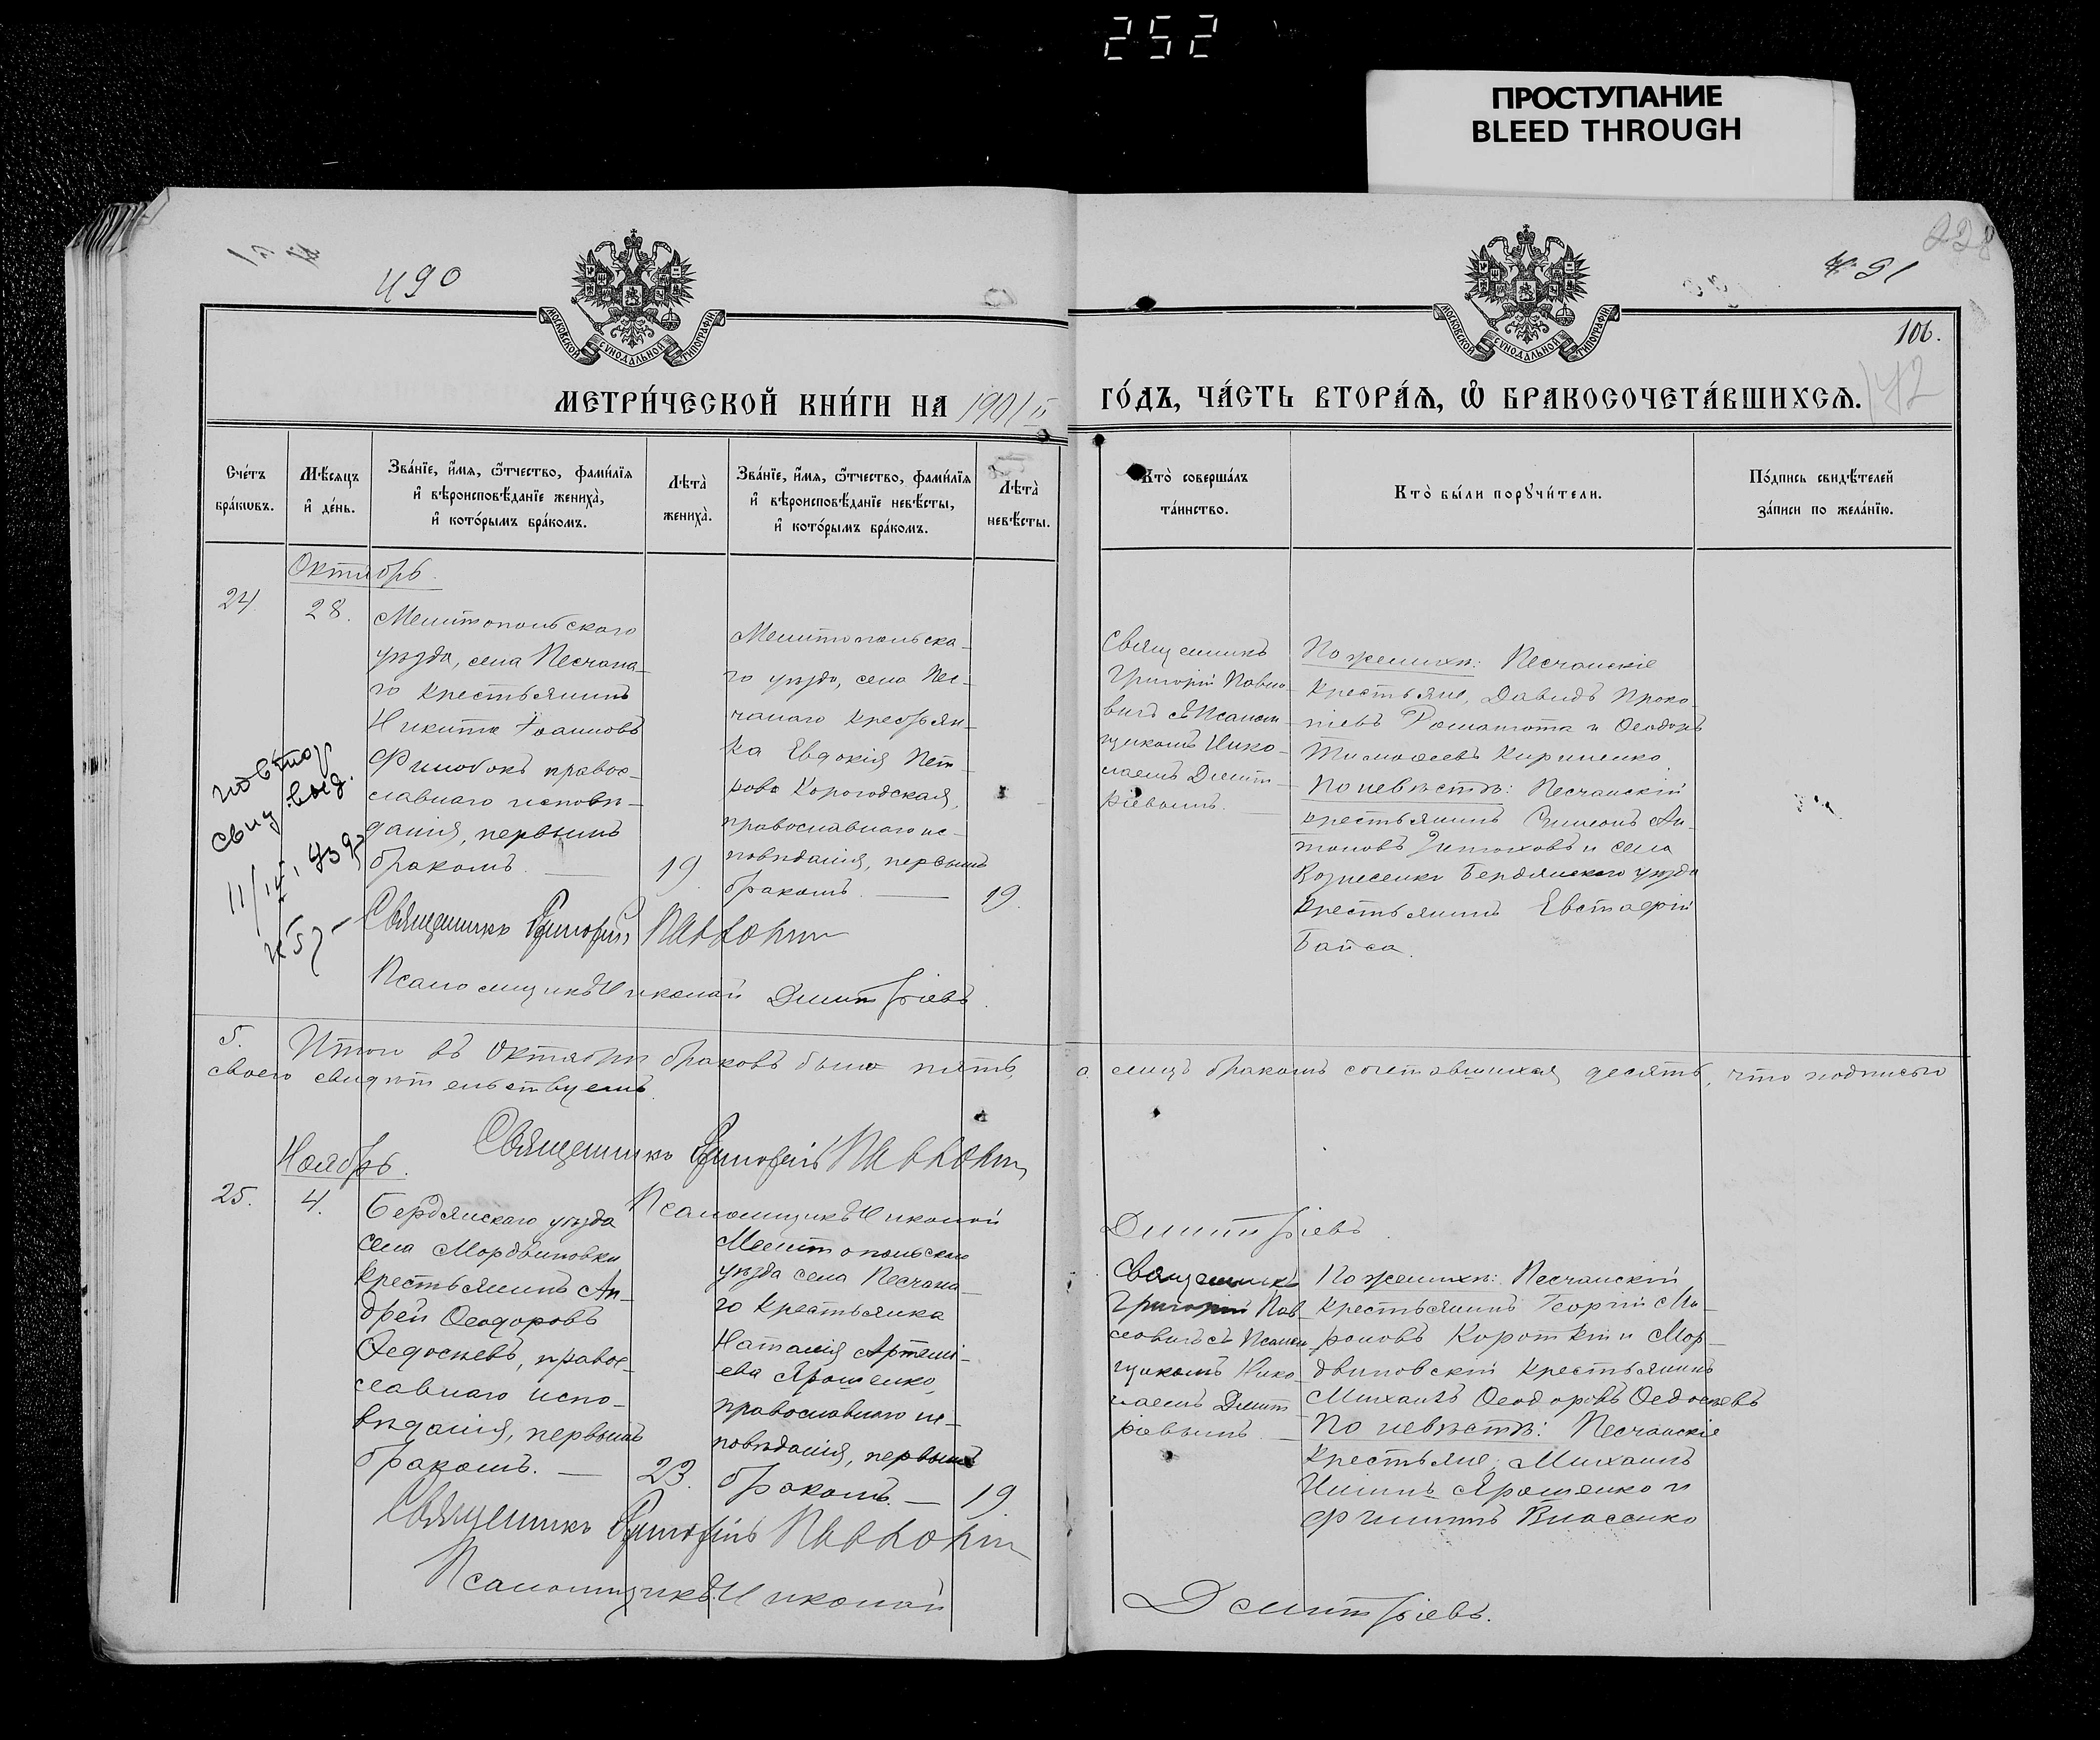 252
ПРОСТУПАНИЕ
BLEED THROUGH
490
491
228
106.
142
МОСКОВСКОЙ СѴНОДАЛЬНОЙ ТИПОГРАФІИ
МОСКОВСКОЙ СѴНОДАЛЬНОЙ ТИПОГРАФІИ
МЕТРИ́ЧЕСКОЙ КНИ́ГИ НА 1901 й ГО́ДЪ, ЧА́СТЬ ВТОРА́Ѧ, Ѽ БРАКОСОЧЕТА́ВШИХСѦ.
Сче́тъ
бра́кѡвъ.
Мѣ́сяцъ
и҆ де́нь.
Зва́нїе, и҆́мѧ, ѻ҆́тчество, фами́лїѧ
и҆ вѣроисповѣ́данїе жениха̀,
и҆ кото́рымъ бра́комъ.
Лѣта̀
жениха̀.
Зва́нїе, и҆́мѧ, ѻ҆́тчество, фами́лїѧ
и҆ вѣроисповѣ́данїе невѣ́сты,
и҆ кото́рымъ бра́комъ.
Лѣта̀
невѣ́сты.
Кто̀ соверша́лъ
та́инство.
Кто̀ бы́ли порꙋчи́тели.
По́дпись свидѣ́телей
за́писи по жела́нїю.
Октябрь.
24.
28.
Мелитопольского
уѣзда, села Песчана-
го крестьянинъ
Никита Іоанновъ
Финобокъ правос-
лавнаго исповѣ-
данія, первымъ
бракомъ.
19.
Мелитопольска-
го уѣзда, села Пес-
чанаго крестьян-
ка Евдокія Пет-
рова Корогодская,
православнаго ис-
повѣданія, первымъ
бракомъ.
19.
Священникъ
Григорій Павло-
вичъ съ Псалом-
щикомъ Нико-
лаемъ Димит-
ріевымъ.
По женихѣ: Песчанскіе
крестьяне, Давидъ Проко-
піевъ и Ѳеодоръ
Тимоѳеевъ Кириченко.
По невѣстѣ: Песчанскій
крестьянинъ Симеонъ Ан-
тоновъ и села
Вознесенки Бердянскаго уѣзда
крестьянинъ Евстаѳій
Байса.
повтор
свид. выд.
11/IV 1939
№57
Священникъ Григорій
Псаломщикъ Николай Димитріевъ.
5.
Итого въ Октябрѣ браковъ было пять, а лицъ бракомъ сочетавшихся десять, что подписью
своею свидѣтельствуемъ.
Священникъ Григорій
Псаломщикъ Николай Димитріевъ.
Ноябрь.
25.
4.
Бердянскаго уѣзда
села Мордвиновки
крестьянинъ Ан-
дрей Ѳеодоровъ
Ѳедосѣевъ, правос-
лавнаго испо-
вѣданія, первымъ
бракомъ.
23.
Мелитопольскаго
уѣзда села Песчана-
го крестьянка
Наталія Артемі-
ева Ярошенко,
православнаго ис-
повѣданія, первымъ
бракомъ.
19
Священникъ
Григорій Пав-
ловичъ съ Псалом-
щикомъ Нико-
лаемъ Димит-
ріевымъ.
По женихѣ: Песчанскій
крестьянинъ Георгій Ми-
роновъ Короткій и Мор-
двиновскій крестьянинъ
Михаилъ Ѳеодоровъ Ѳедосѣевъ
По невѣстѣ: Песчанскіе
крестьяне, Михаилъ
Ярошенко и
Филиппъ Власенко
Священникъ Григорій
Псаломщикъ Николай Димитріевъ.